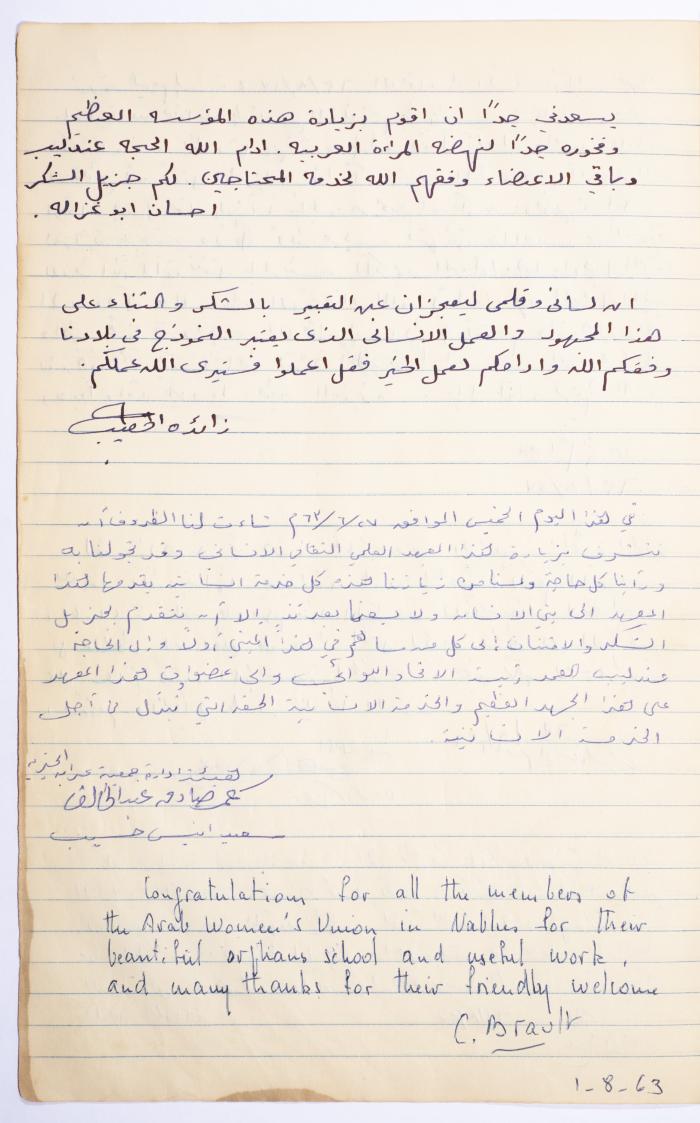 يسعدني جداً ان اقوم بزيارة هذه المؤسسه العظيم
وفخوره جداً لنهضة المراءة العربيه. ادام الله الحجه عندليب
وباقي الاعضاء وفقهم الله لخدمة المحتاجين. لكم جزيل الشكر
احسان ابو غزاله.
ان لسانى وقلمى ليعجزان عن التعبير بالشكر والثناء على
هذا المجهود والعمل الانسانى الذى يعتبر النموذج في بلادنا
وفقكم الله وادامكم لعمل الخير فقل اعملوا فسيرى الله عملكم.
زائده الخطيب
في هذا اليوم الخميس الموافق ٢٧/٦/٦٣م شاءت لنا الظروف أن
نتشرف بزيارة هذا المعهد العلمي الثقافي الانساني وقد تجولنا به
ورأينا كل حاجة ولمسنا من زيارتنا هذه كل خدمة انسانية يقدمها هذا
المعهد الى بني الانسان ولا يسعنا بعد تذ إلا أن نتقدم بجزيل
الشكر والامتنان إلى كل من ساهم في هذا المبنى أولاً وإلى الحاجة
عندليب العمد رئيسة الاتحاد النسائي والى عضوات هذا المعهد
على هذا الجهد العظيم والخدمة الانسانية الحقه التي تبذل من أجل
الخدمة الانسانية.
الهيئة ادارة جمعية عرابه الخيرية
صادق عبد الخالق
سعيد انيس
Congratulations for all the members of
the Arab Women's Union in Nablus for their
beautiful orphans school and useful work,
and many thanks for their friendly welcome
C. Brault
1-8-63